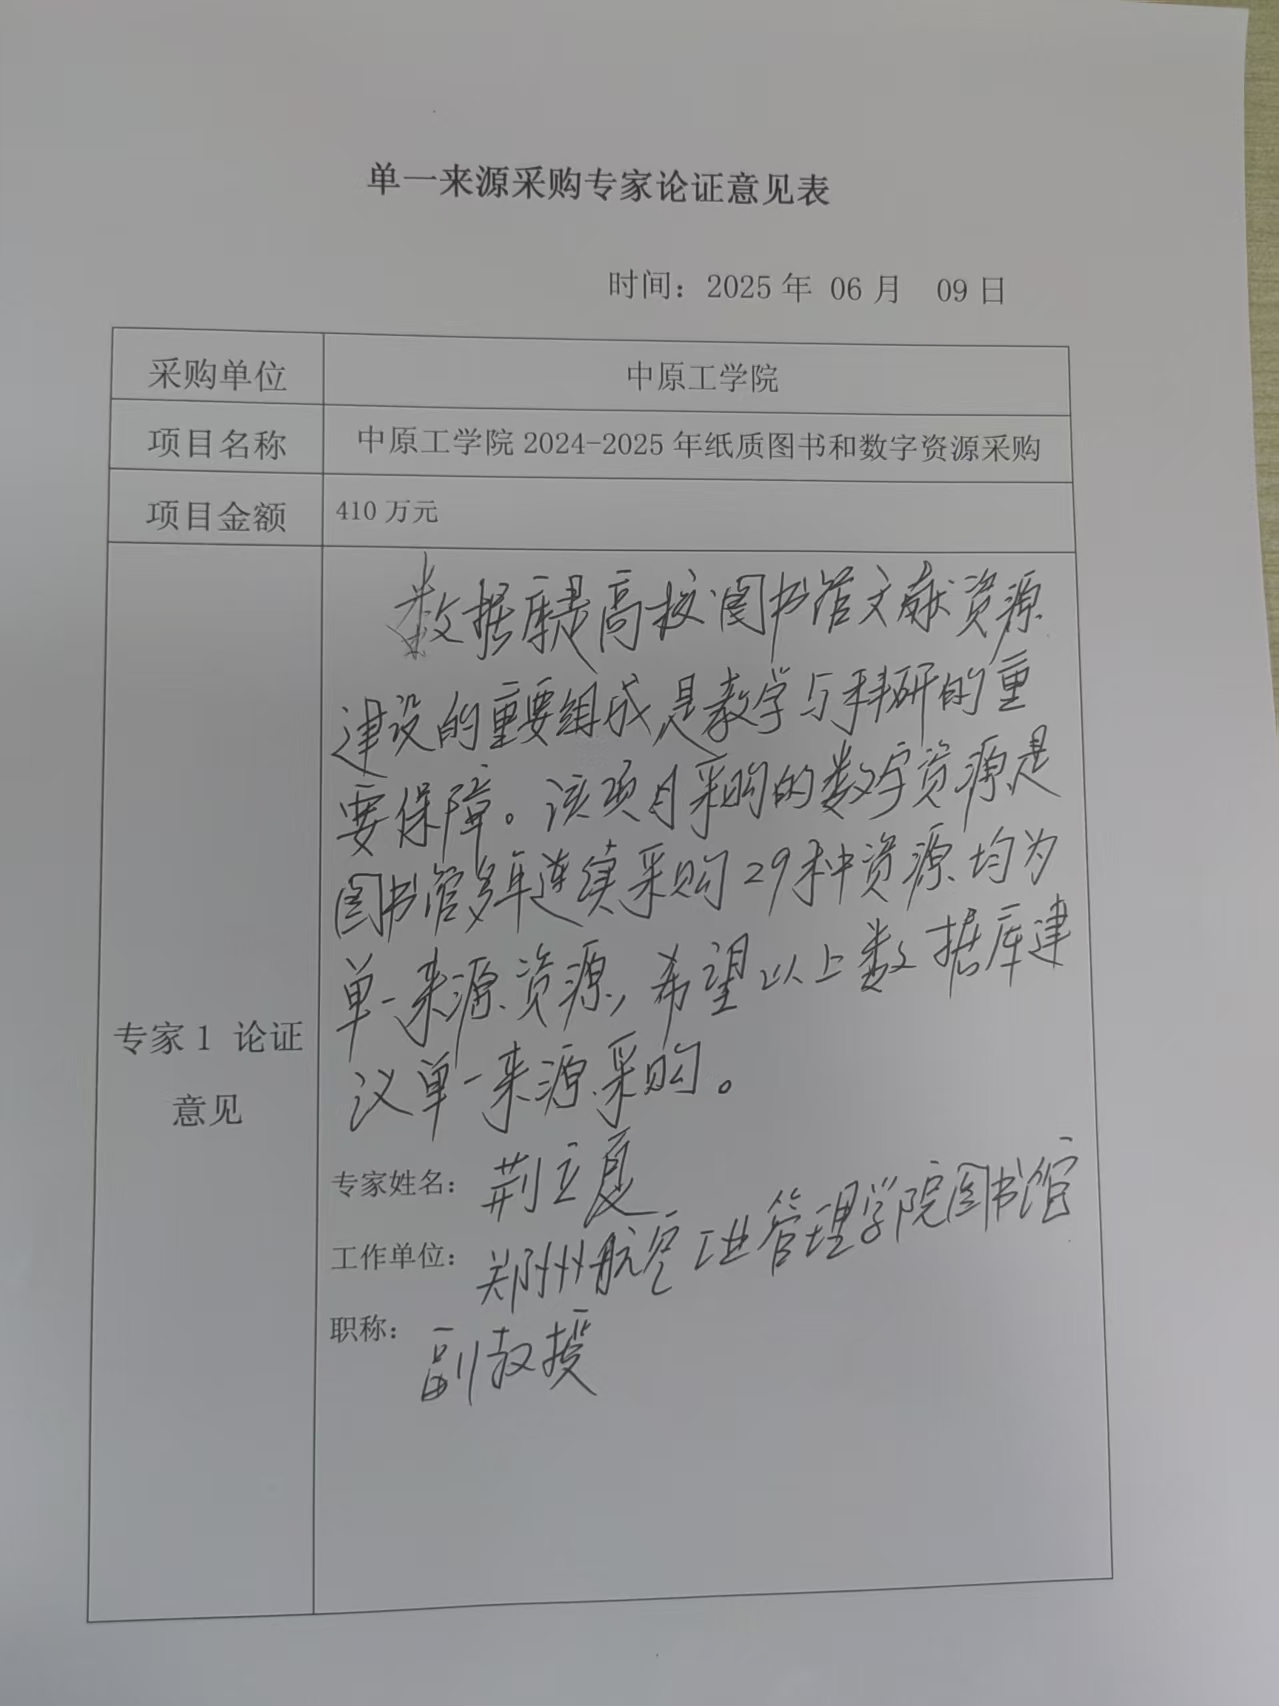 单一来源采购专家论证意见表
时间：2025 年 06 月 09 日
采购单位 中原工学院
项目名称 中原工学院 2024-2025 年纸质图书和数字资源采购
项目金额 410 万元
专家 1 论证
意见
数据库是高校图书馆文献资源
建设的重要组成,是教学与科研的重
要保障。该项目采购的数字资源是
图书馆多年连续采购29种资源均为
单一来源资源,希望以上数据库建
议单一来源采购。
专家姓名：荆立夏
工作单位：郑州航空工业管理学院图书馆
职称：副教授